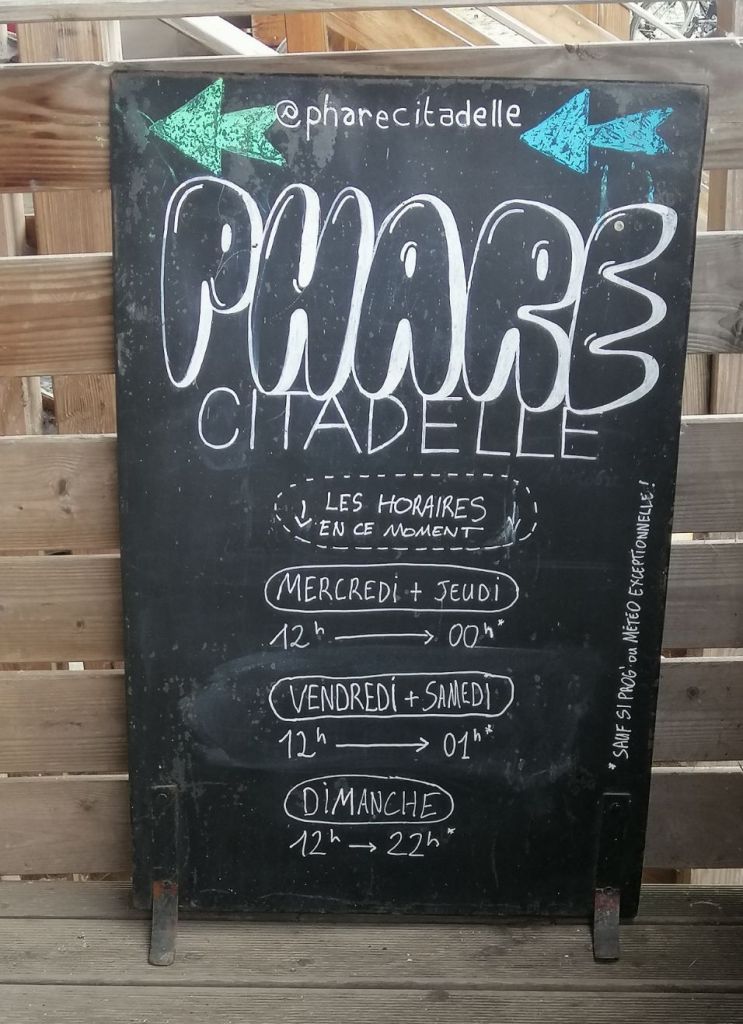 @pharecitadelle
PHARE
CITADELLE
LES HORAIRES
EN CE MOMENT
MERCREDI + JEUDI
12h → 00h*
VENDREDI + SAMEDI
12h → 01h*
DIMANCHE
12h → 22h*
* SAUF SI PROG' OU MÉTÉO EXCEPTIONNELLE !